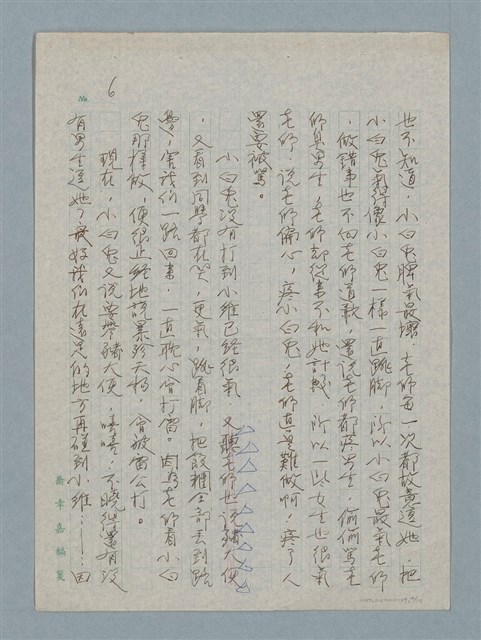 也不知道,小白兔脾氣最壞,老師每一次都故意逗她,把
小白兔氣得像小白兔一樣一直跳腳,所以小白兔最氣老師
,做錯事也不向老師道歉,還說老師都疼男生,偷偷罵老
師臭男生,老師都從來不和她計較,所以一些女生也很氣
老師,說老師偏心,疼小白兔,老師真是難做啊,疼了人
還要被罵。
小白兔沒有打到小維已經很氣,又聽老師也說豬大便
,又看到同學都在笑,更氣,跳著腳,把飯糰全部丟到路
邊,害我們一路回來,一直耽心會打雷。因為老師看小白
兔那樣放,便很正經地說暴殄天物,會被雷公打。
現在,小白兔又說要帶豬大便,嘻嘻,不曉得還有沒
有男生逗她?最好我們在表兄的地方再碰到小維……田
No. 6
喻幸嘉稿箋